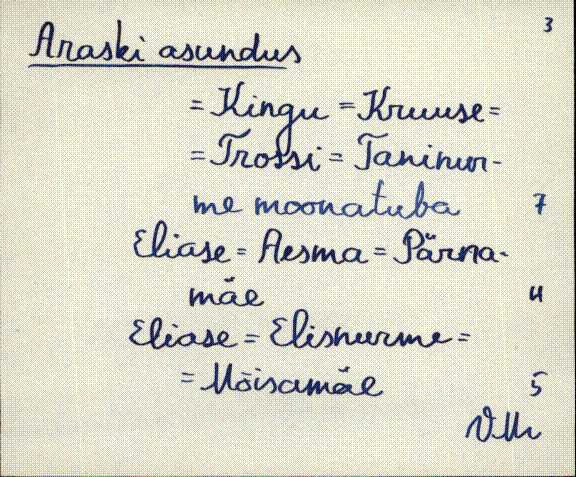 3
Araski asundus
= Kingu = Kruuse =
= Trossi = Taninur-
me moonatuba 7
Eliase = Aesma = Pärna-
mäe 4
Eliase = Elisnurme =
= Mõisamäe 5